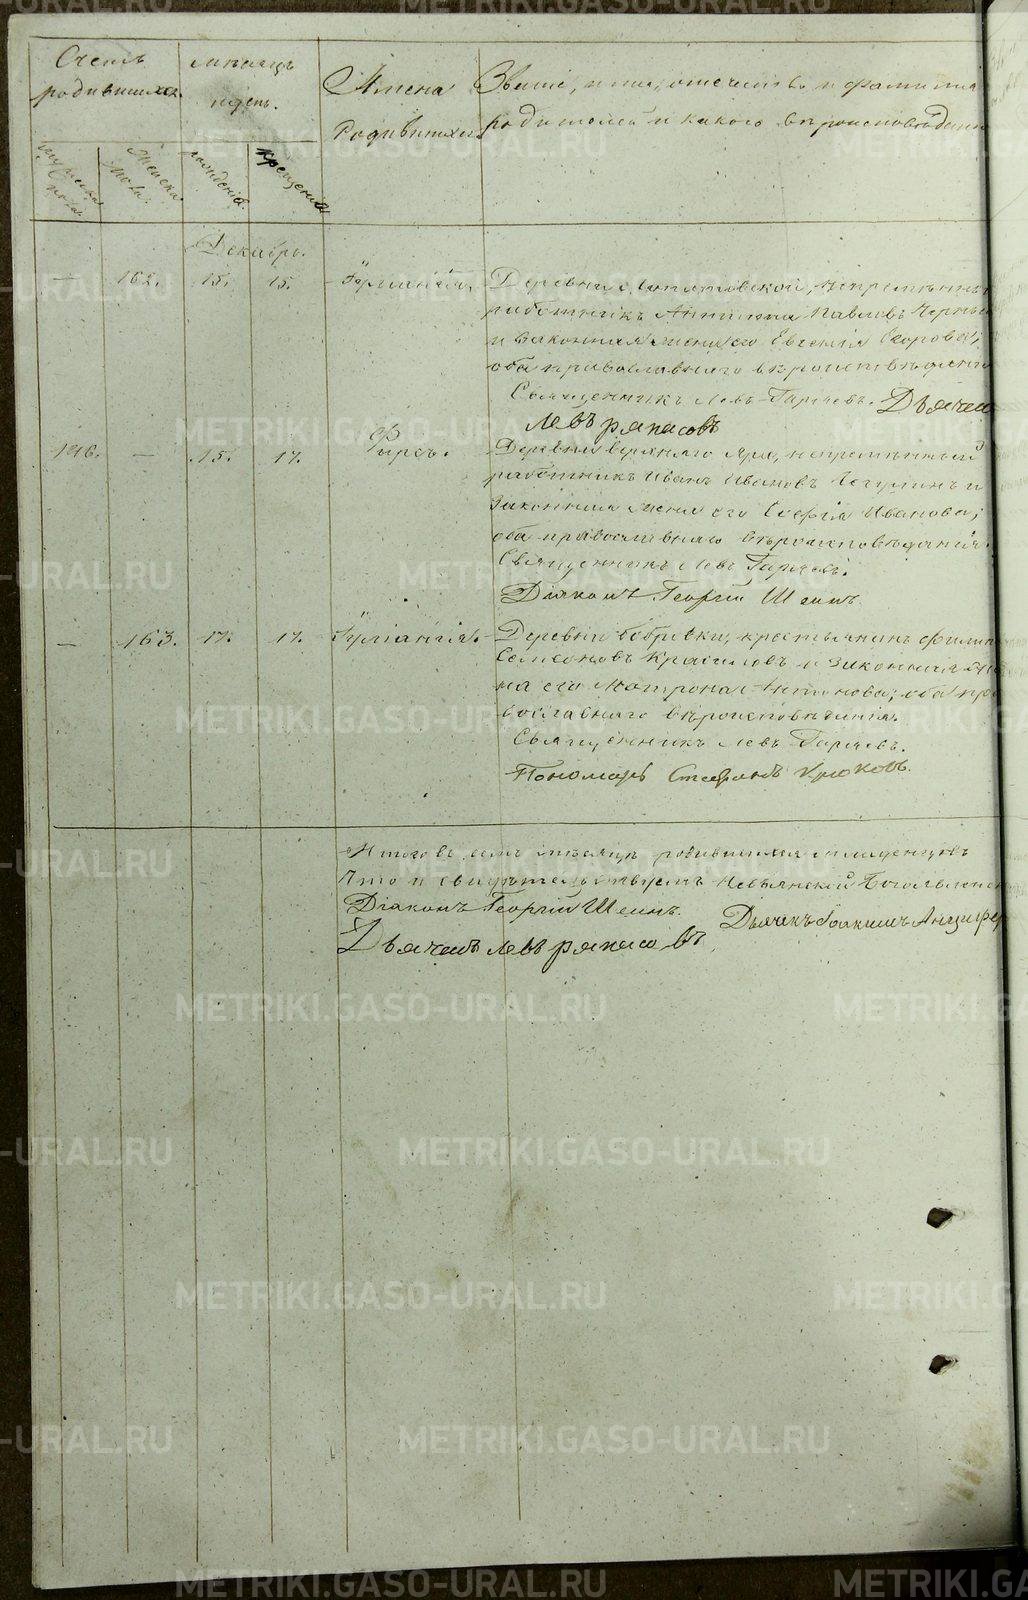 Счетъ родившихся.
мѣсяцъ и день.
Имена Родившихся.
Званіе, имя, отечество и фамилія
родителей и какого вѣроисповѣданія
мужеска пола.
Женска пола.
рожденія.
крещенія
Декабрь.
— 162. 15. 15. Іуліанія. Деревни непремѣнный
работникъ Павловъ
и законная жена его Евгенія Егорова,
оба православнаго вѣроисповѣданія
Священникъ Левъ Гаряевъ. Дьячекъ
Левъ Ряпасовъ
146. — 15. 17. Фирсъ. Деревни верхняго яра, непремѣнный
работникъ Иванъ Ивановъ и
Законная жена его Софія Иванова;
оба православнаго вѣроисповѣданія.
Священникъ Левъ Гаряевъ.
Діаконъ Георгій Шеинъ.
— 163. 17. 17. Іуліанія. Деревни бобровки, крестьянинъ Филипъ
Семеоновъ Красиловъ и законная же
на его Матрона Антонова; оба пра
вославнаго вѣроисповѣданія.
Священникъ Левъ Гаряевъ.
Пономарь Стефанъ Крюковъ.
Итого въ семъ мѣсяцѣ родившихся младенцовъ
Что и свидѣтельствуемъ Невьянской Богоявленской
Діаконъ Георгій Шеинъ. Дьячекъ Іоакимъ
Дьячекъ Левъ Ряпасовъ
METRIKI.GASO-URAL.RU